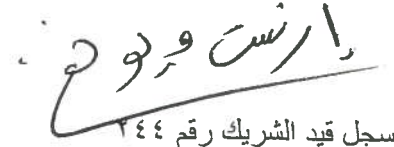 إرنست ويونغ
سجل قيد الشريك رقم ٢٤٤